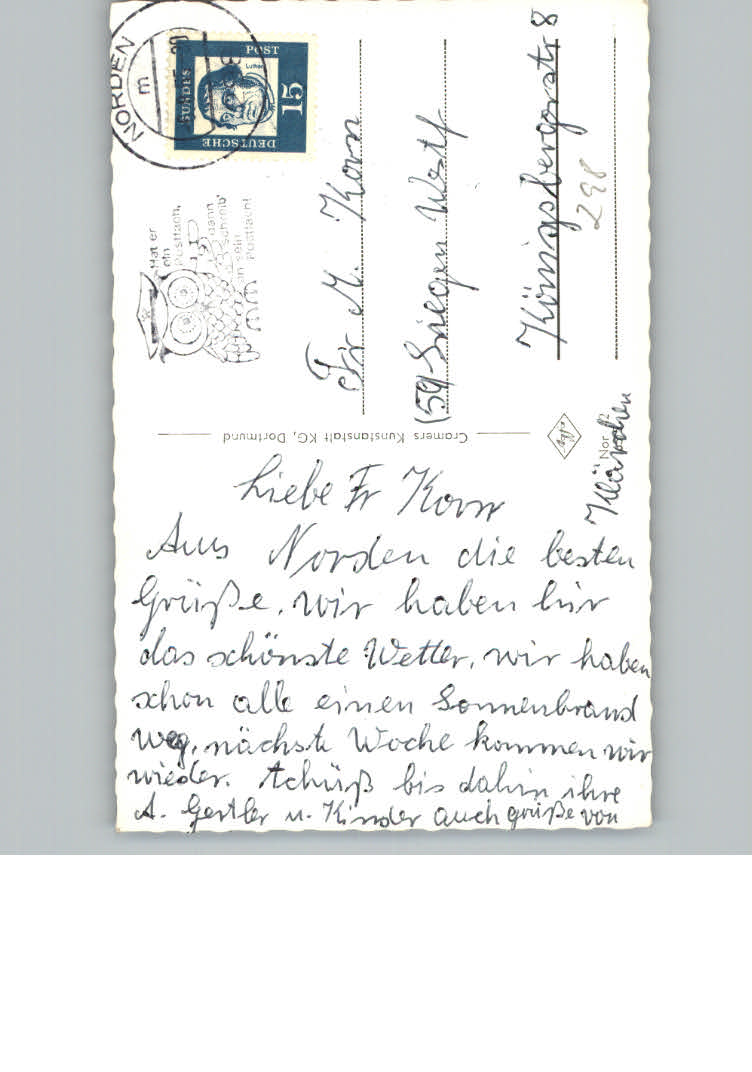 NORDEN
m
DEUTSCHE
BUNDES
POST
Luther
15
Hat er
ein
Postfach,
dann
schreib'
an sein
Postfach!
Fr M. Korn
(59 Siegen Westf
Königsbergstr 8
298
Cramers Kunstanstalt KG, Dortmund
Nor
Liebe Fr Korn
Aus Norden die besten
Grüße, wir haben hir
das schönste Wetter, wir haben
schon alle einen Sonnenbrand
weg, nächste Woche kommen wir
wieder. tchüß bis dahin ihre
A. Gertler u. Kinder auch grüße von
Klärchen